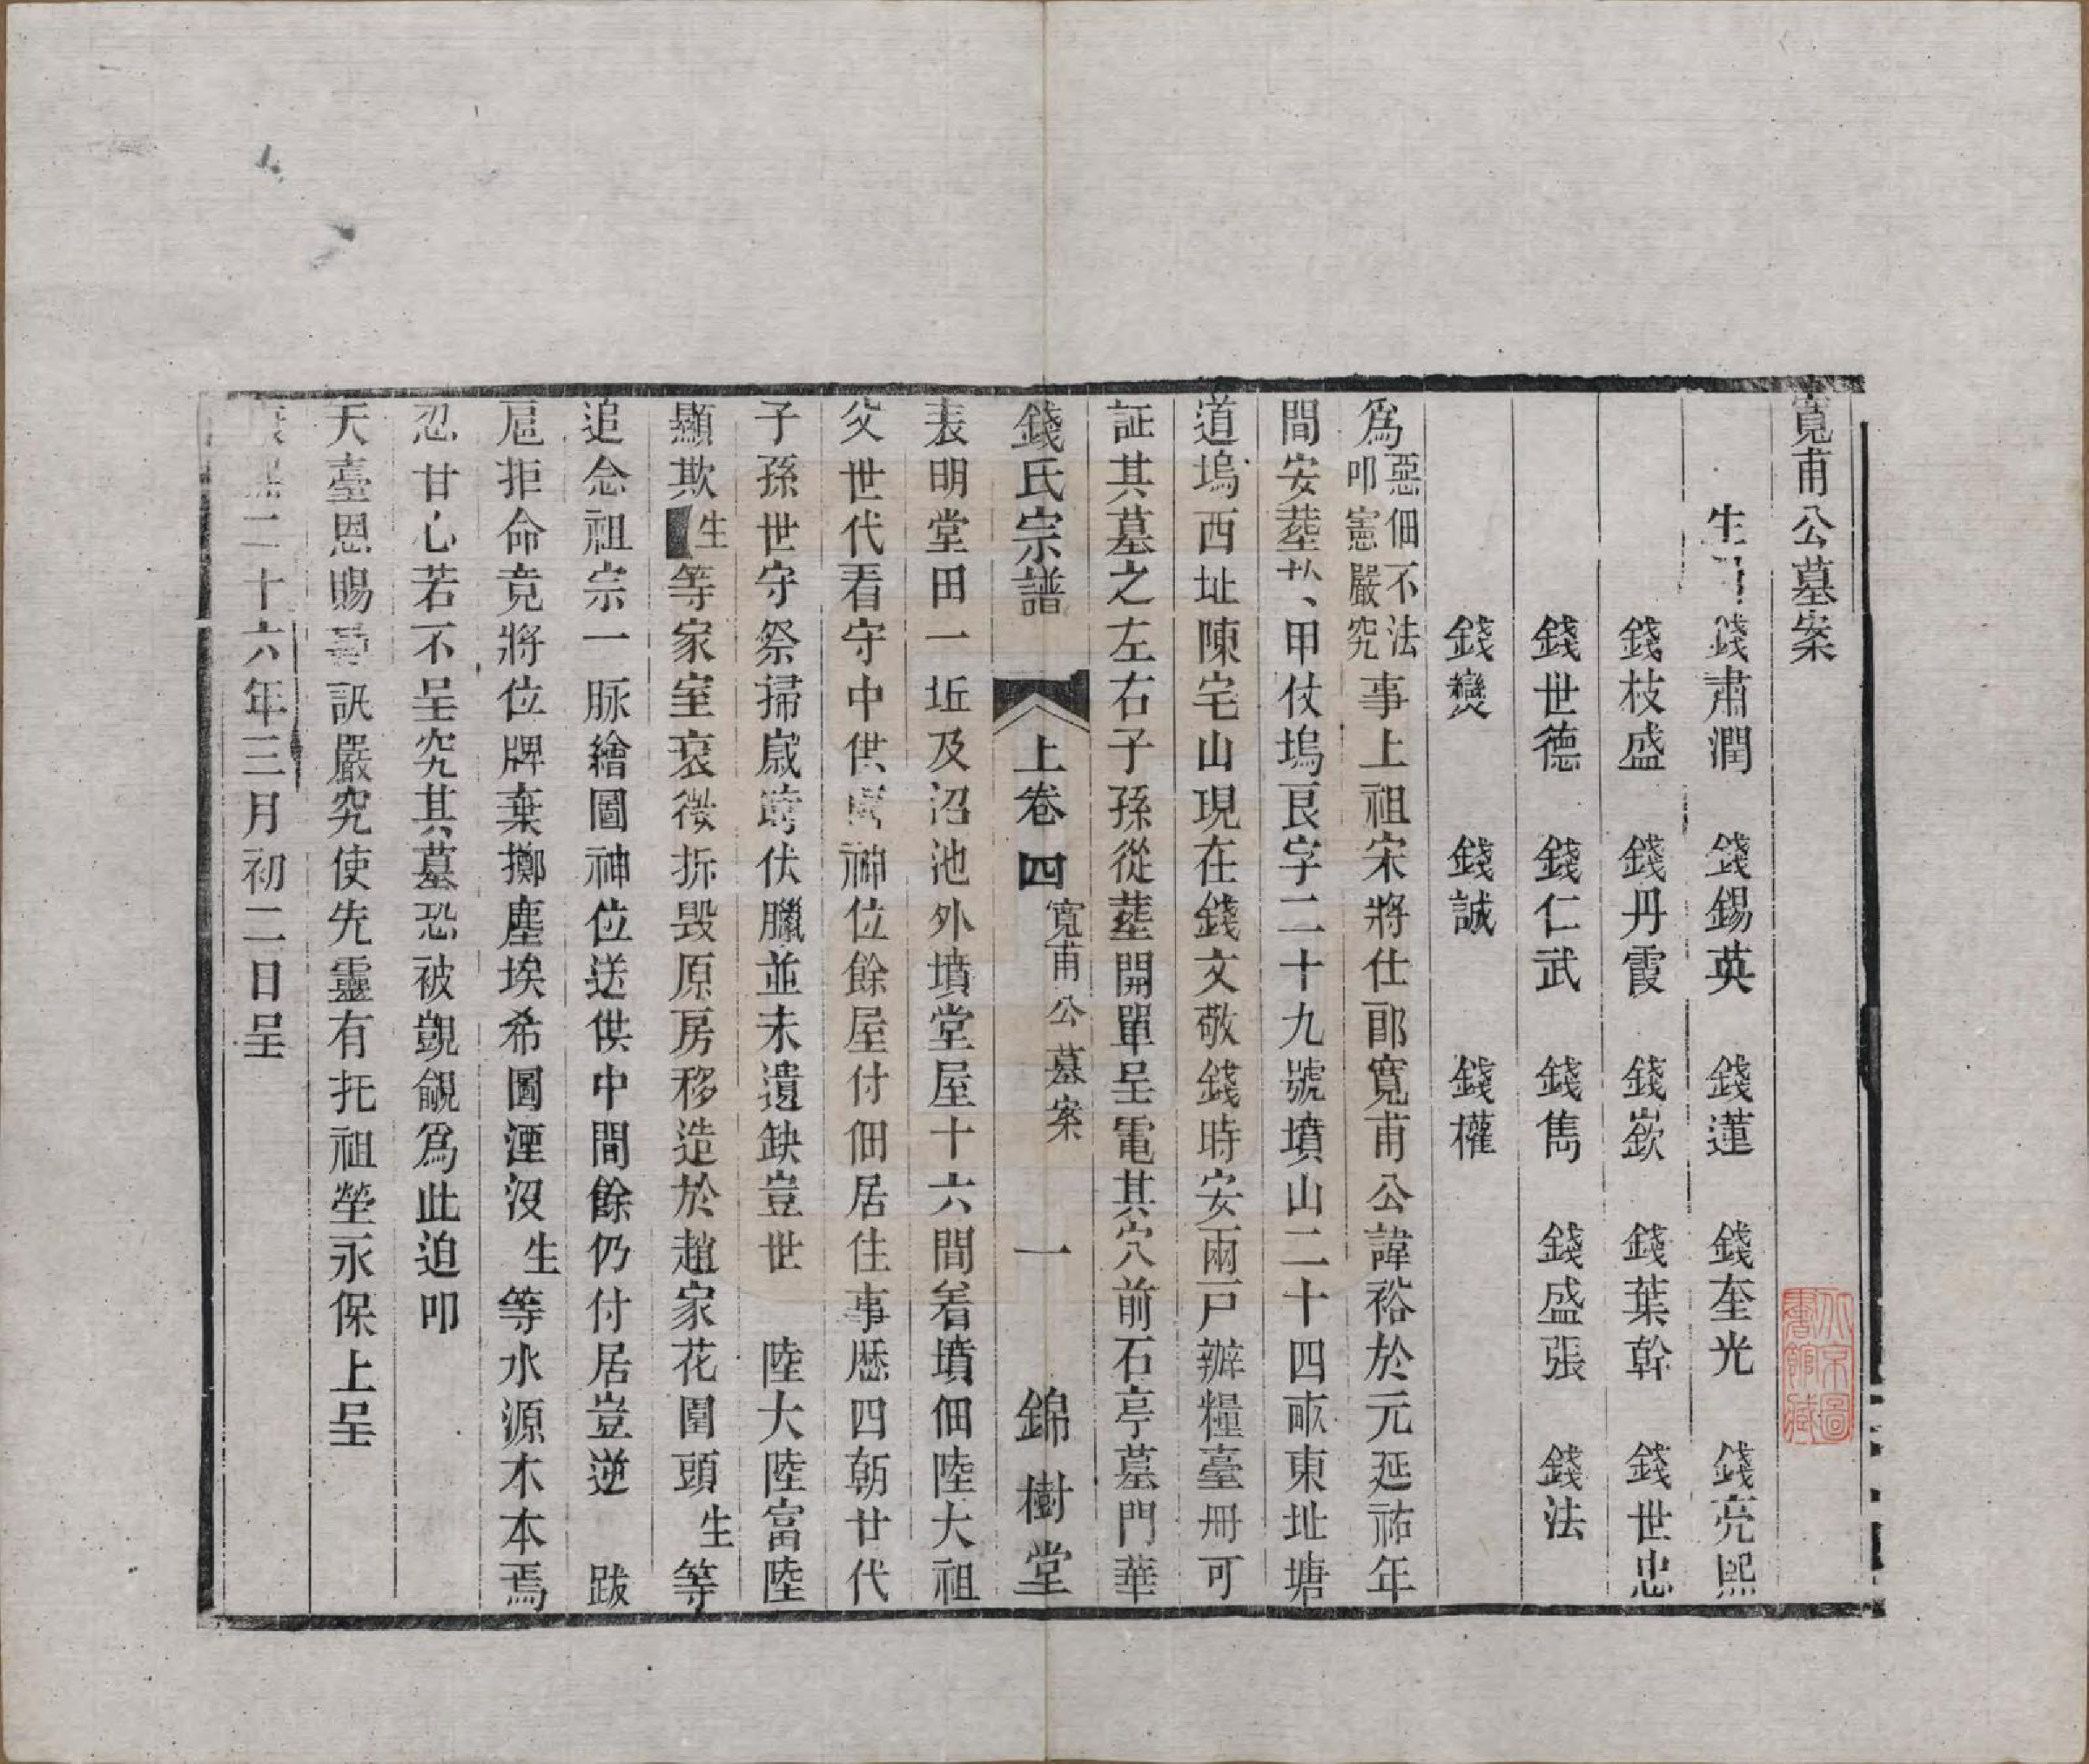 寬甫公墓案
生 錢肅潤 錢錫英 錢蓮 錢奎光 錢亮熙
錢枝盛 錢丹霞 錢嶔 錢葉幹 錢世忠
錢世德 錢仁武 錢雋 錢盛張 錢法
錢爕 錢誠 錢權
為惡佃不法叩憲嚴究事上祖宋將仕郎寬甫公諱裕於元延祐年
間安塟扒、甲仗塢艮字二十九號墳山二十四畝東址塘
道塢西址陳宅山現在錢文敬錢時安兩戸辦糧臺冊可
証其墓之左右子孫從塟開單呈電其穴前石亭墓門華
錢氏宗譜 上卷四 寬甫公墓案 一 錦樹堂
表明堂田一坵及沼池外墳堂屋十六間着墳佃陸大祖
父世代看守中供 神位餘屋付佃居住事歴四朝廿代
子孫世守祭掃歲時伏臘並未遺缺豈世 陸大陸富陸
顯欺生等家室衰微拆毀原房移造於趙家花園頭生等
追念祖宗一脉繪圖神位送供中間餘仍付居豈逆 跋
扈拒命竟將位牌棄擲塵埃希圖湮沒生等水源木本焉
忍甘心若不呈究其墓恐被覬覦為此迫叩
天臺恩賜尋訊嚴究使先靈有托祖塋永保上呈
康熙二十六年三月初二日呈
北京圖書館藏